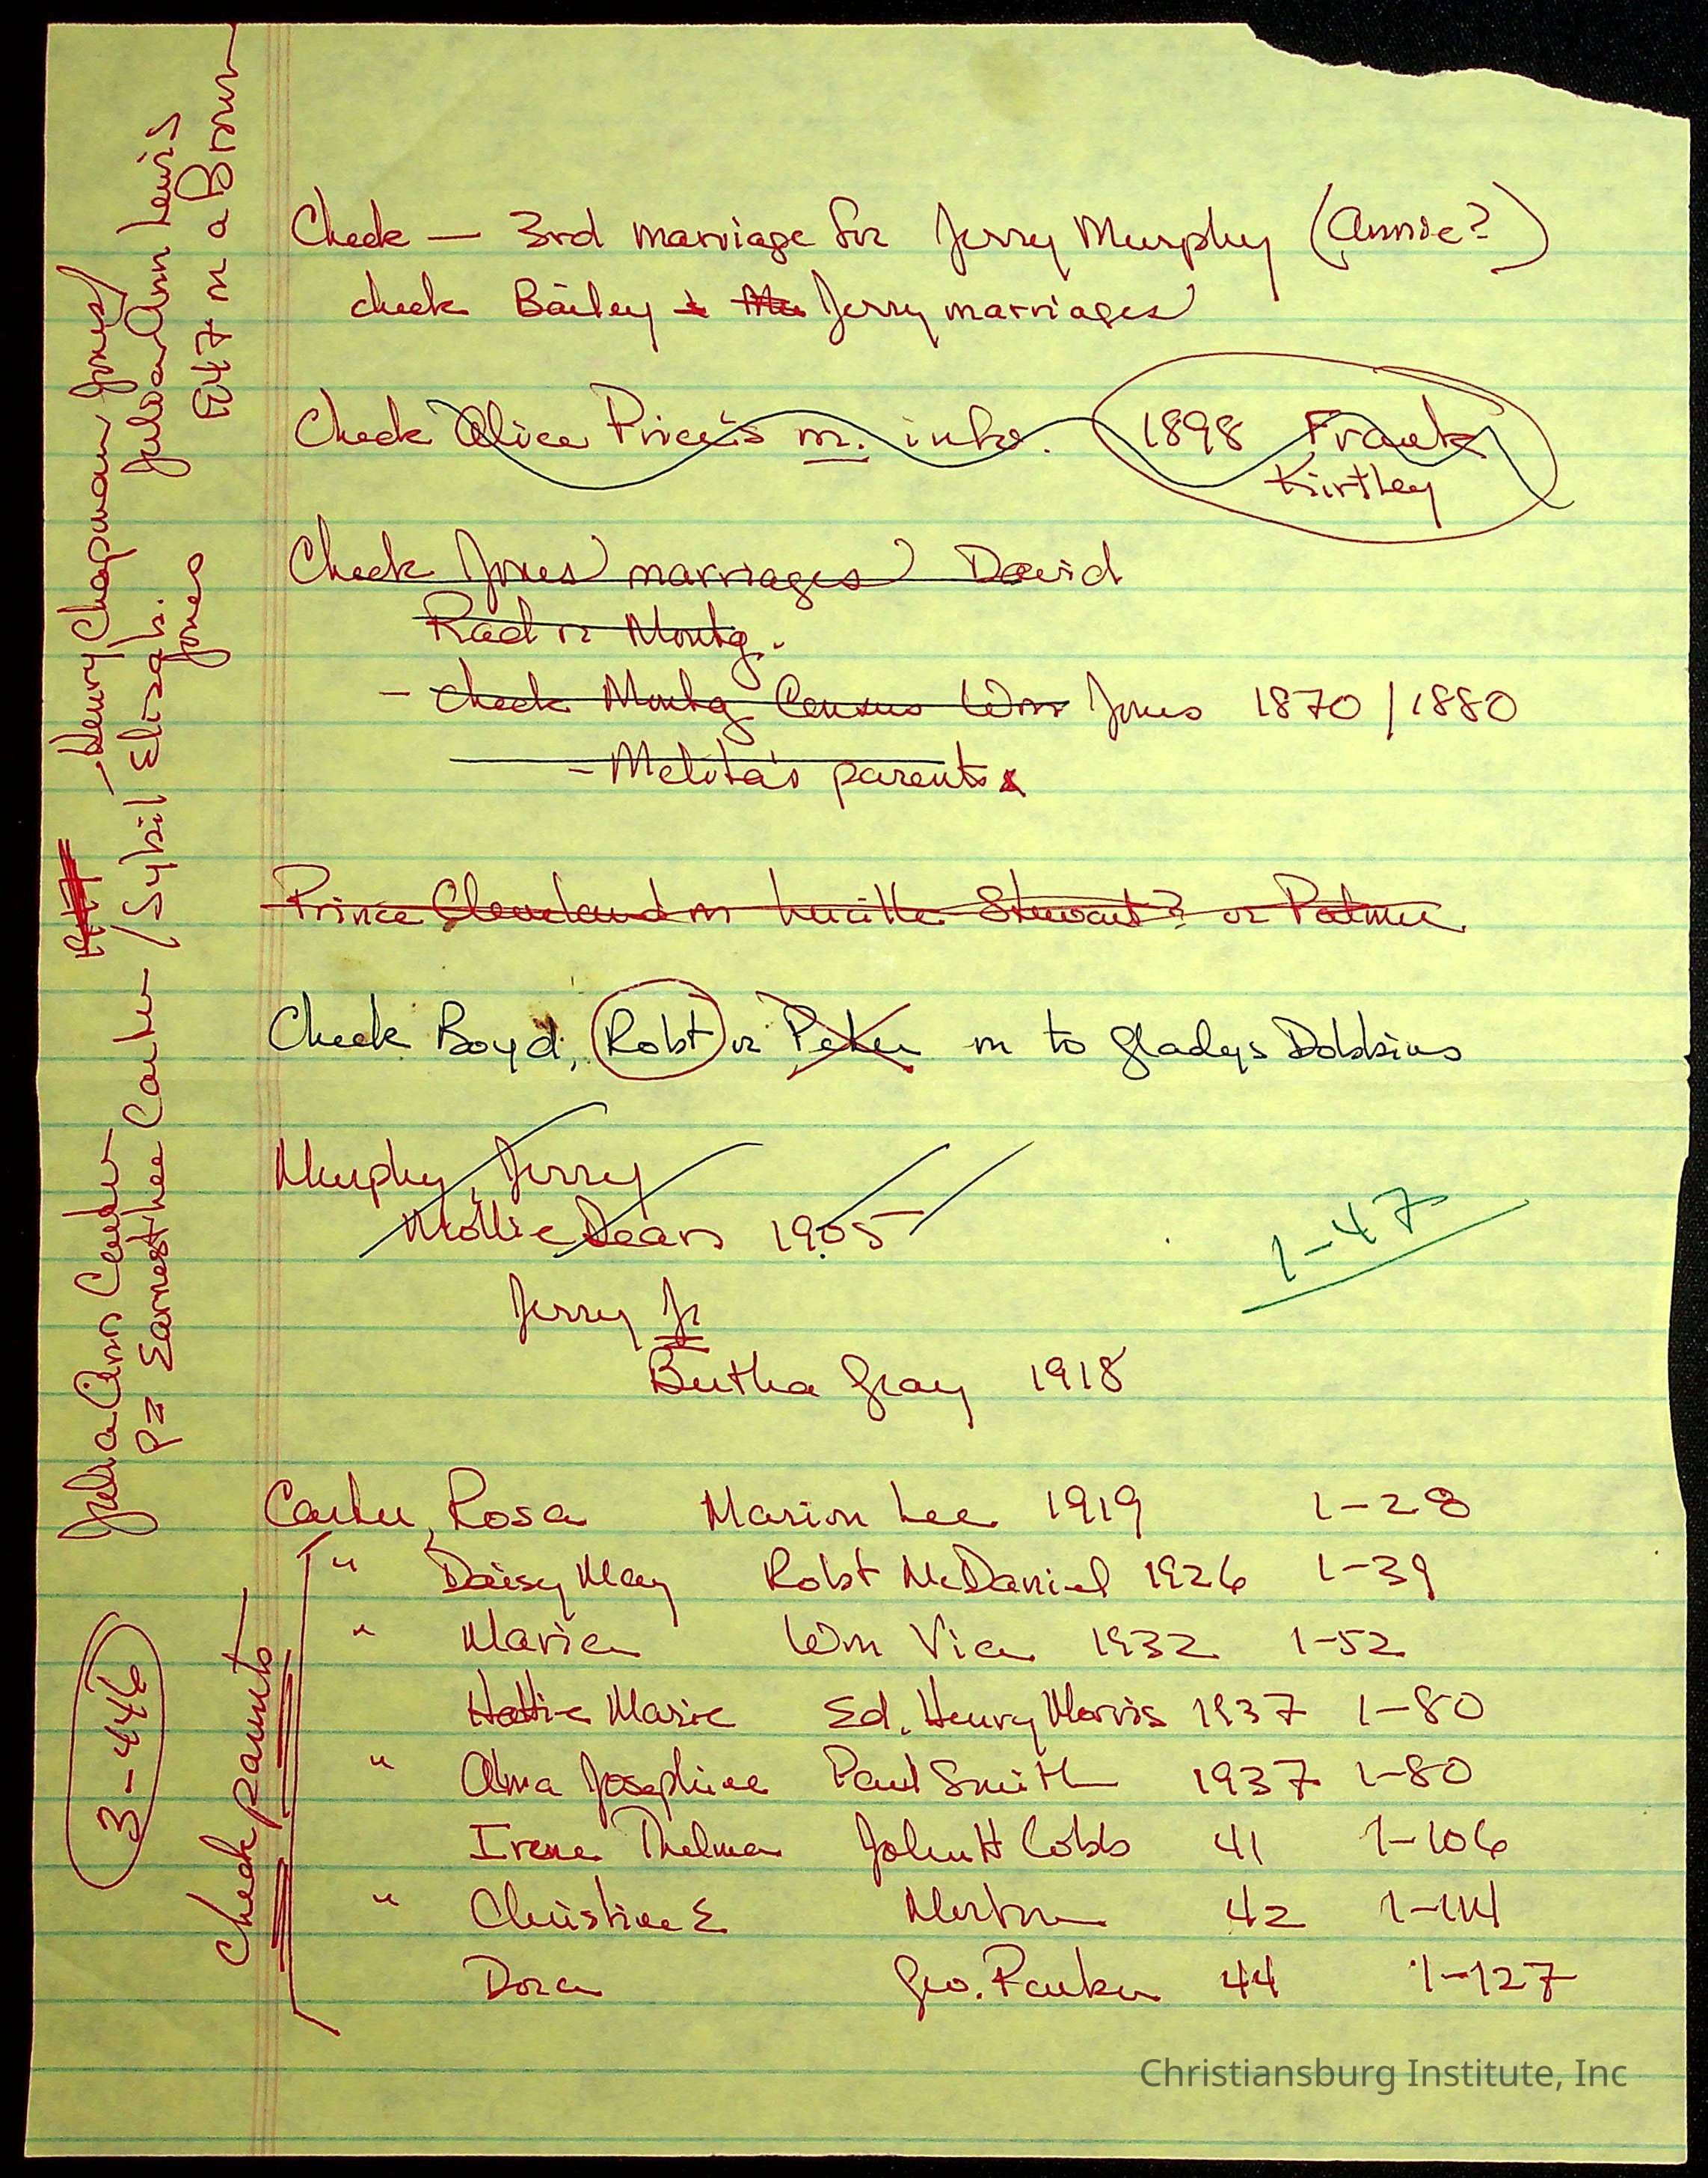 Check — 3rd marriage for Jerry Murphy (Annie?)
check Bailey + Jerry marriages
Check Alice Price's m. info. 1898 Frank
Kirtley
Check Jones marriages David
Rad or Montg.
- check Montg Census Wm Jones 1870 / 1880
- Melita's parents
Prince Cleveland m Lucille Stewart? or Palmer
Check Boyd, Robt or Peter m to Gladys Dobbins
Murphy, Jerry
Mollie Sears 1905
1-47
Jerry Jr
Bertha Gray 1918
Carter, Rosa Marion Lee 1919 1-28
" Daisy May Robt McDaniel 1926 1-39
" Maria Wm Via 1932 1-52
Hattie Marie Ed. Henry Morris 1937 1-80
" Alma Josephine Paul Smith 1937 1-80
Irene Thelma John H Cobbs 41 1-106
" Christine E Morton 42 1-114
Dora Geo. Parker 44 1-127
Check parents
3-446
Julia Ann Carter
P= Earnest Lee Carter / Sybil Elizab.
Jones
- Henry Chapman Jones /
Julia Ann Lewis
1947 m a Brown
Christiansburg Institute, Inc